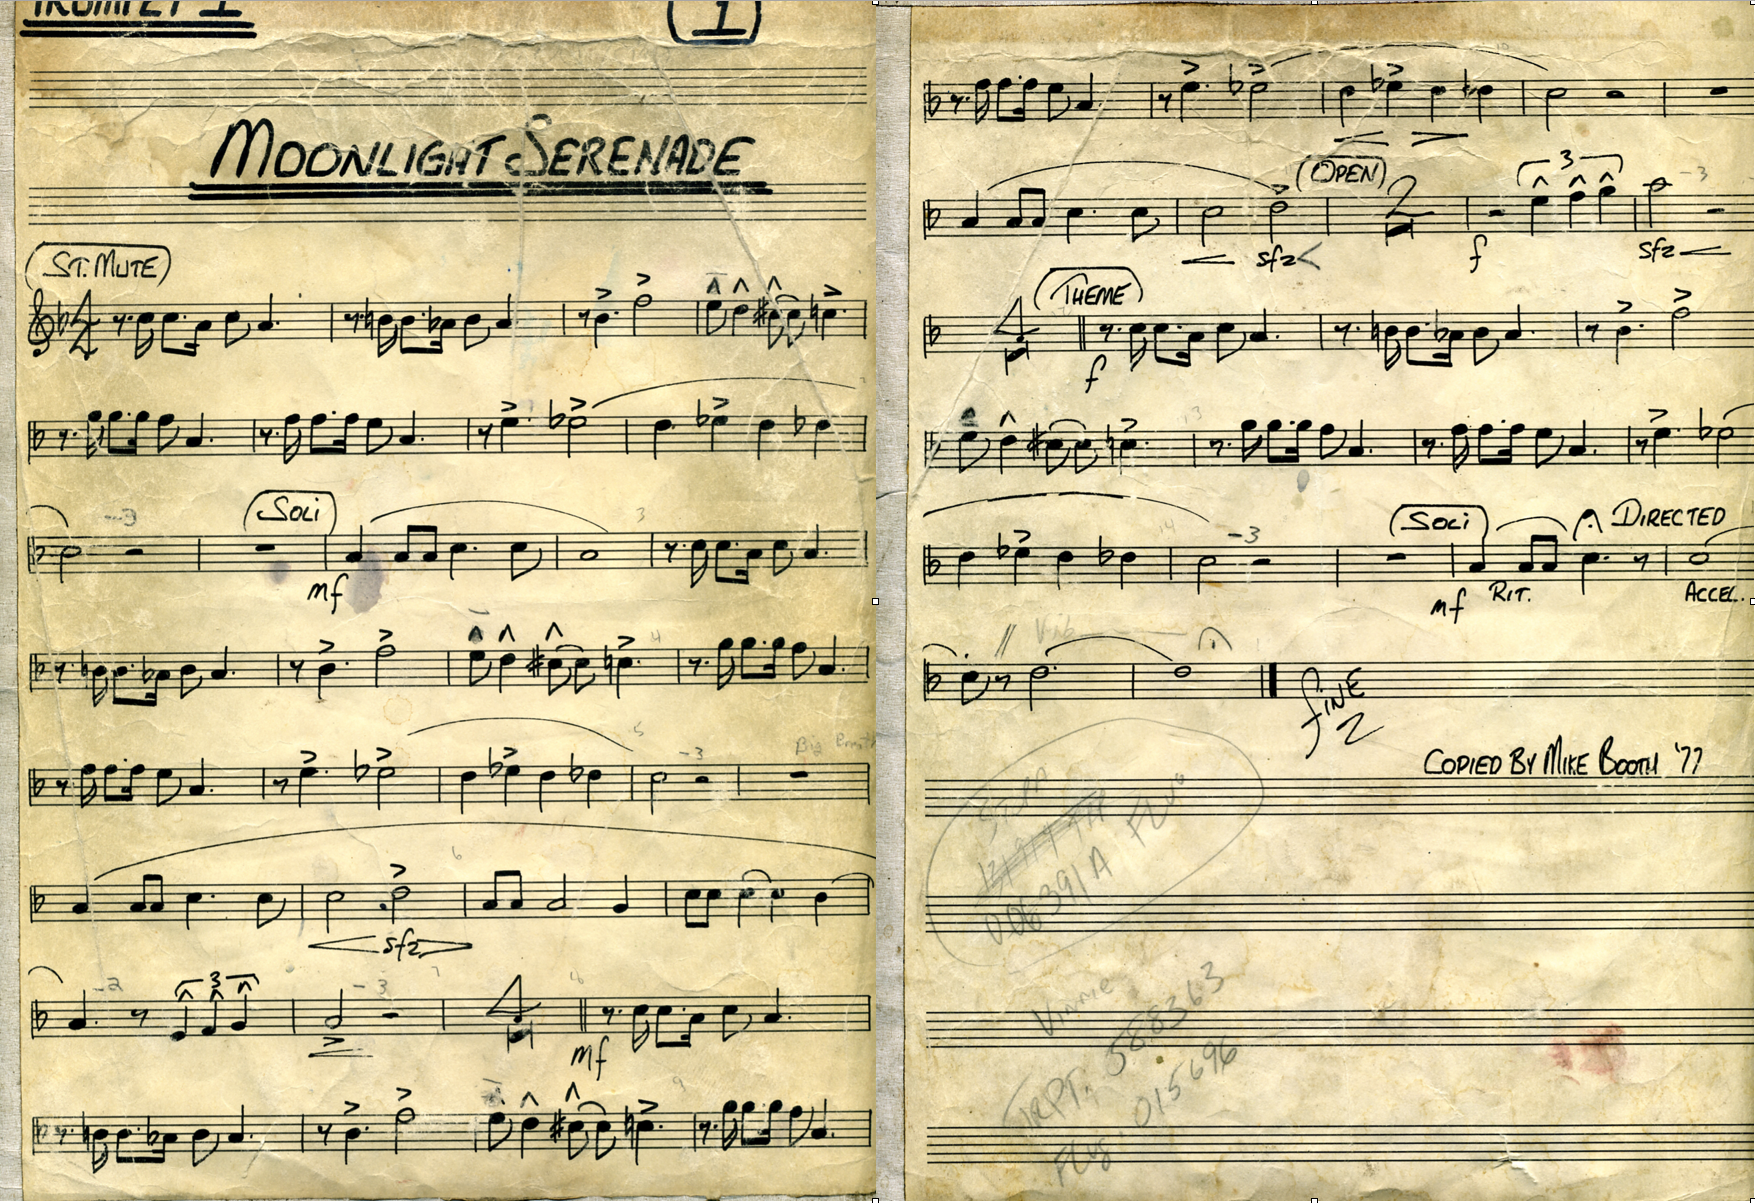 TRUMPET 1
1
MOONLIGHT SERENADE
ST. MUTE
4
-3
SOLI
3
mf
4
5
-3
Big Breath
6
sfz
-2
3
-3
7
4
8
mf
9
OPEN
2
3
-3
sfz
f
sfz
THEME
4
f
13
SOLI
DIRECTED
14
-3
mf
RIT.
ACCEL.
FINE
2
COPIED BY MIKE BOOTH '77
006391A FLUG
Vinnie
TRPT. 588363
Flug. 015696